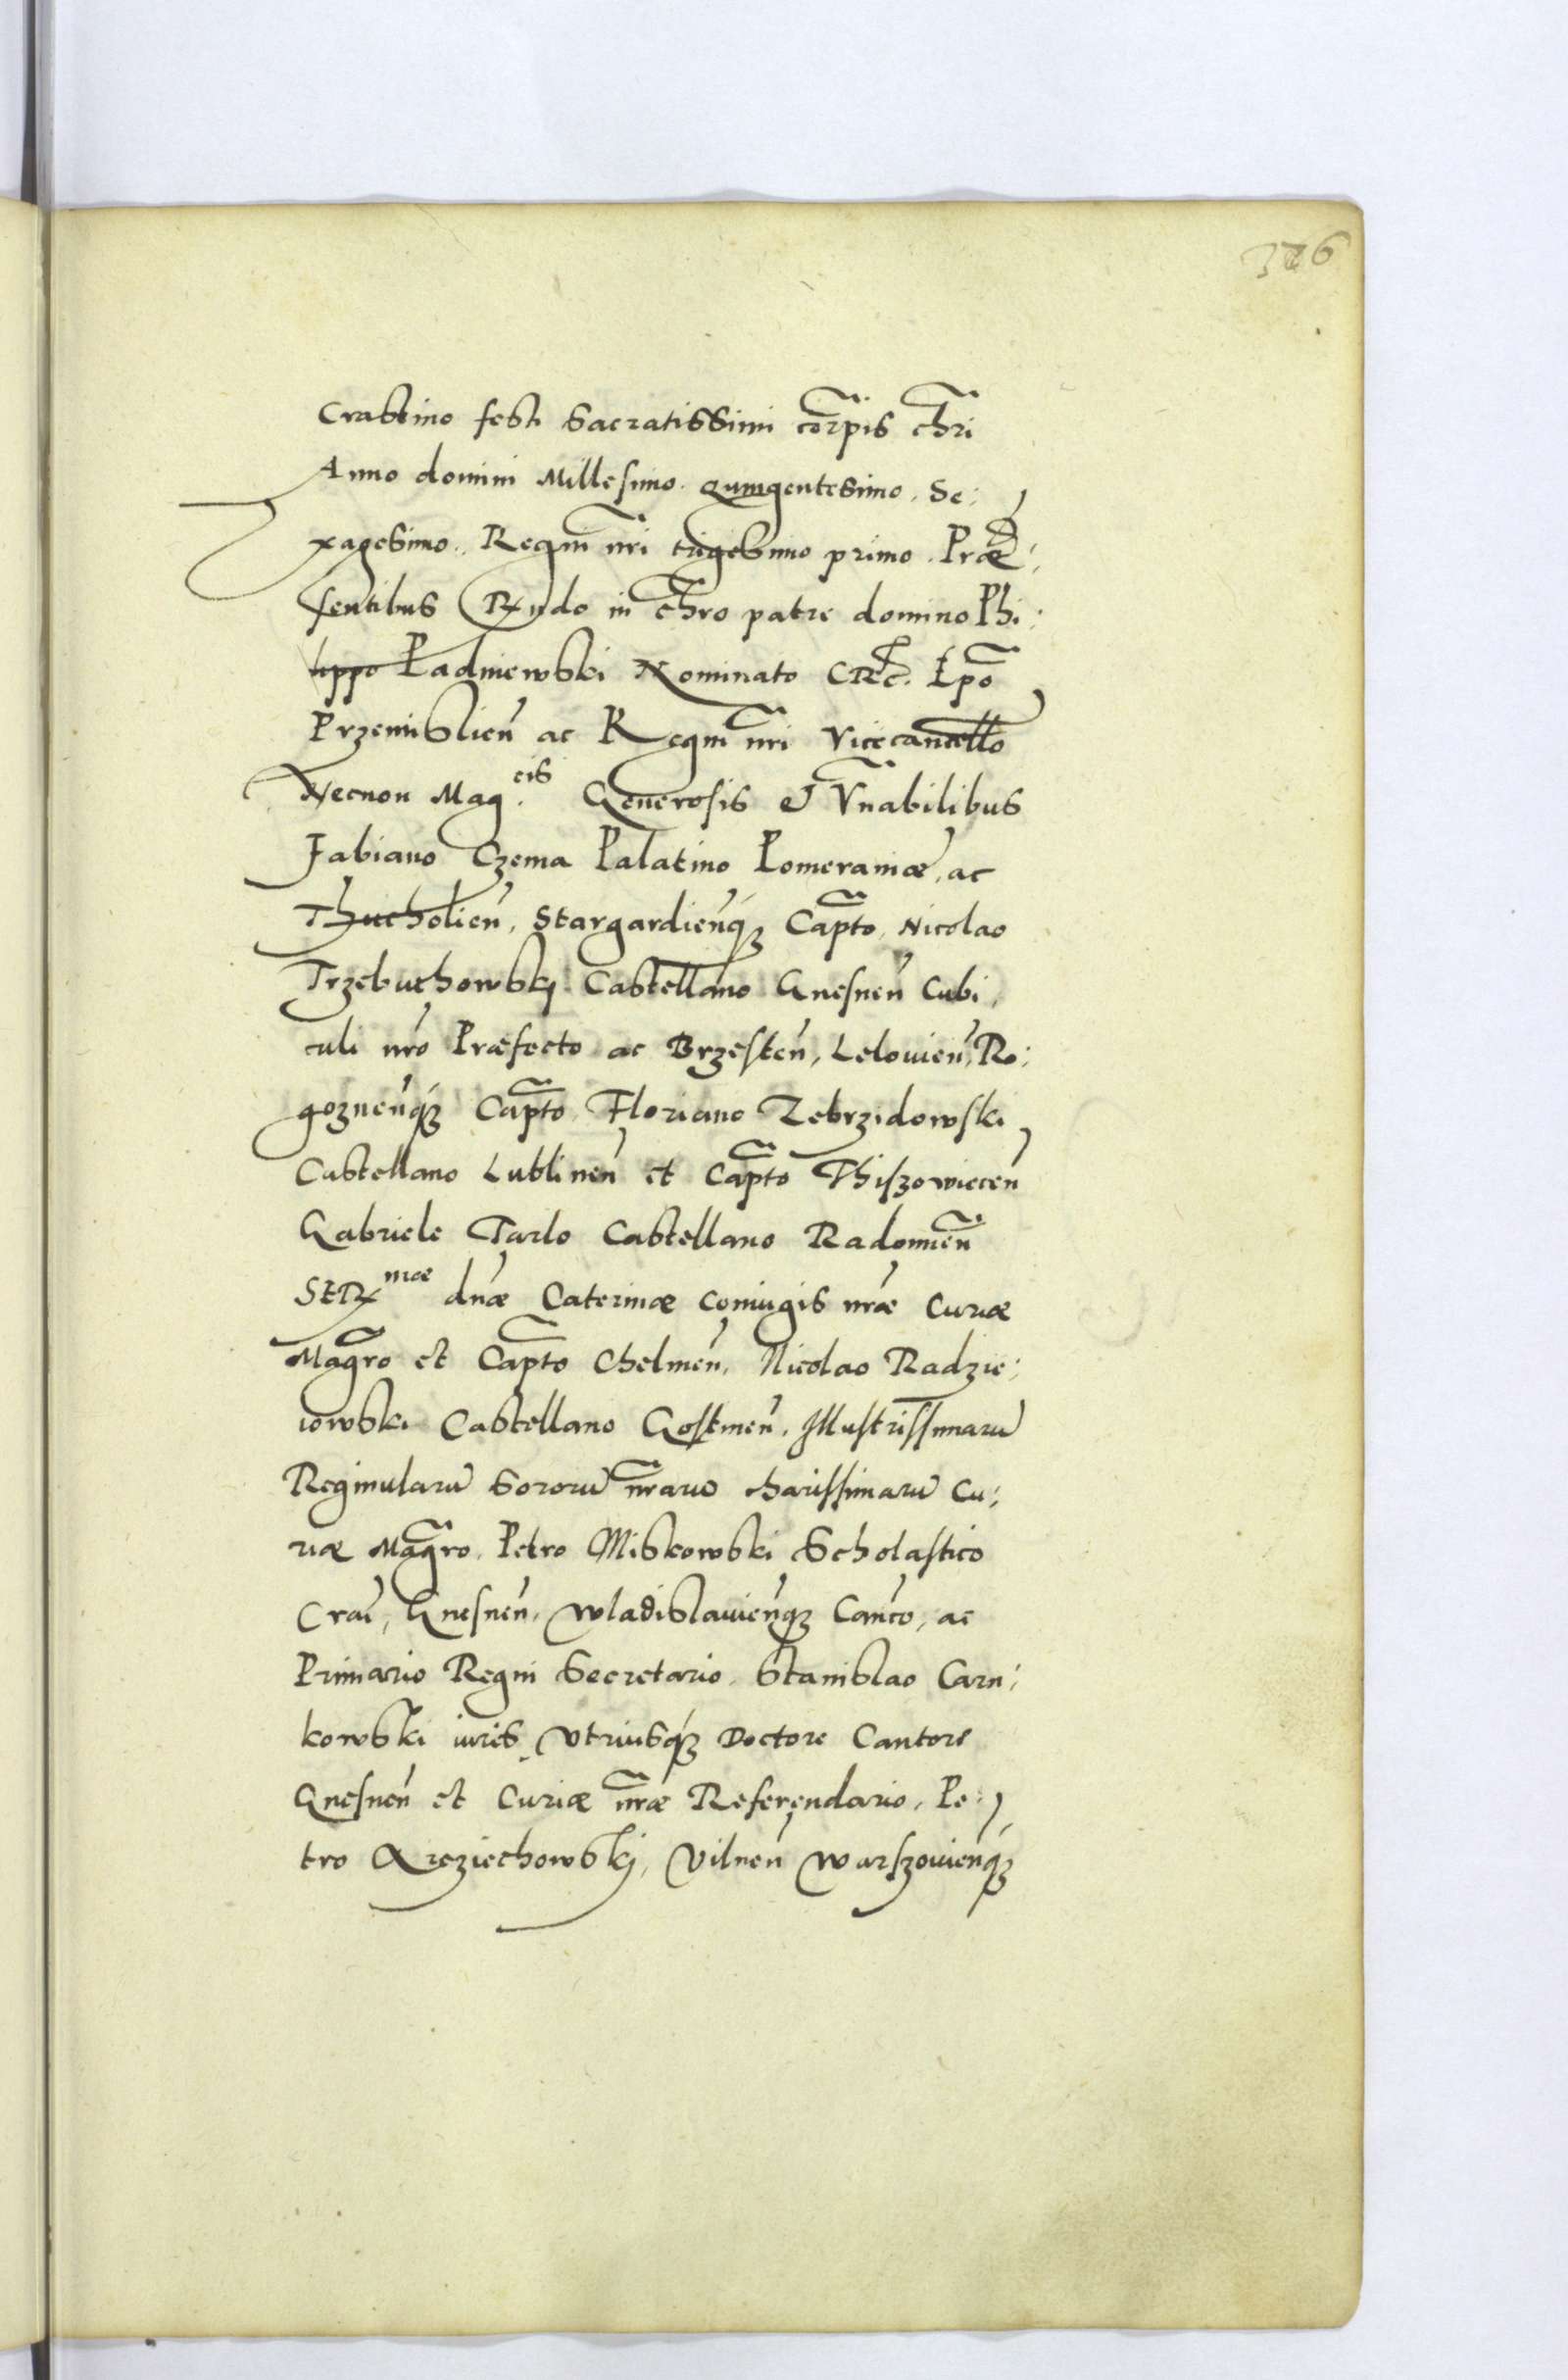 326
Crastino festi Sacratissimi corpis chri
Anno domini Millesimo quingentesimo Se:
xagesimo. Regni nri trigesimo primo. Præ:
sentibus Rndo in Chro patre domino Phi:
lippo Padniewski Nominato Epo
Przemislien ac Regni nri Vicecancello
Necnon Mag.cis Generosis et Vnabilibus
Fabiano Czema Palatino Pomeraniæ, ac
Thucholien, Stargardienq́ Capto, Nicolao
Trzebuchowskj Castellano Gnesnen Cubi,
culi nro Præfecto ac Brzesten, Lelouien, Ro:
goznenq́ Capto Floriano Zebrzidowski
Castellano Lublinen et Capto Thiszowiecen
Gabriele Tarlo Castellano Radomien
SERmæ dnæ Caterinæ coniugis nræ Curiæ
Magro et Capto Chelmen, Nicolao Radzie:
iowski Castellano Gostinen, Illustrissimaru
Reginularu Sororu nraru charissimaru Cu:
riæ Magro, Petro Miskowski Scholastico
Crac, Gnesnen, Wladislauienq́ Canco, ac
Primario Regni Secretario, Stanislao Carn:
kowski iuris Vtriusq́ Doctore Cantore
Gnesnen et Curiæ nræ Referendario, Pe:
tro Vilnen Warszouienq́